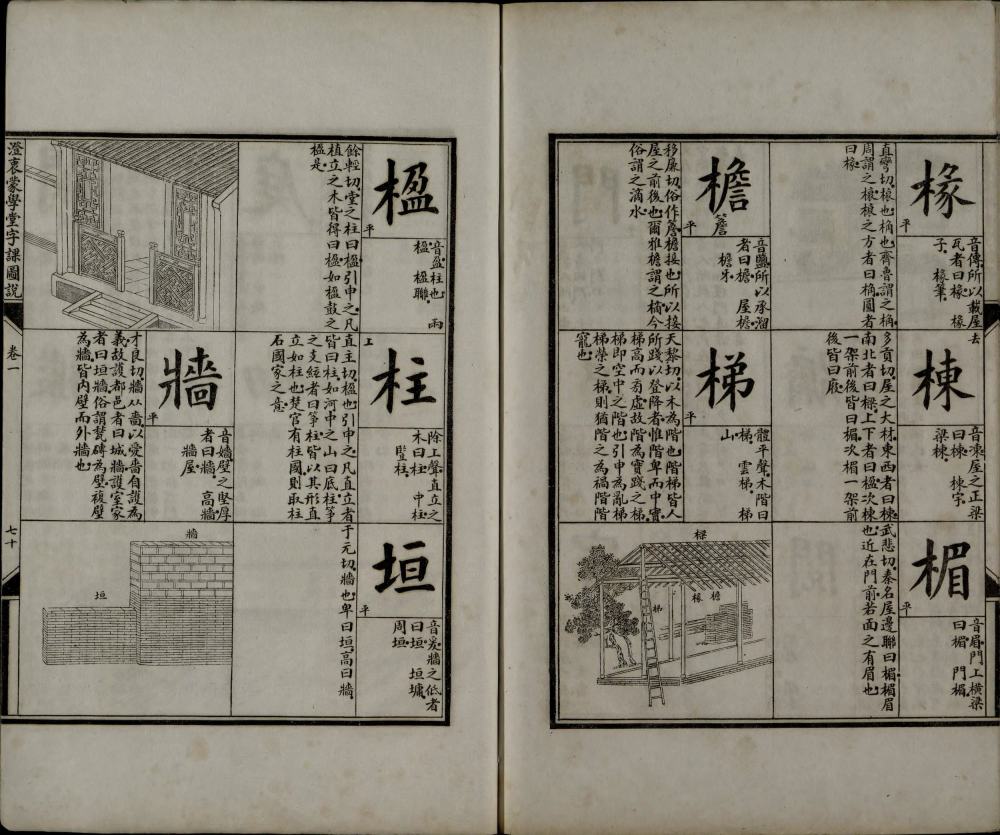 椽
平
音傳所以載屋
瓦者曰椽 椽
子 椽筆
直彎切榱也桷也齊魯謂之桷
周謂之榱榱之方者曰桷圓者
曰椽
棟
去
音凍屋之正梁
曰棟 棟宇
梁棟
多貢切屋之大材東西者曰棟
南北者曰樑上下者曰楹次棟
一架前後皆曰楣次楣一架前
後皆曰庪
楣
平
音眉門上橫梁
曰楣 門楣
武悲切秦名屋邊聯曰楣楣眉
也近在門前若面之有眉也
檐
簷
平
音鹽所以承溜
者曰檐 屋檐
檐牙
移廉切俗作簷檐接也所以接
屋之前後也爾雅檐謂之樀今
俗謂之滴水
梯
平
體平聲木階曰
梯 雲梯 梯
山
天黎切以木為階也階梯皆人
所踐以登降者惟階卑而中實
梯高而旁虛故階為實踐之梯
梯即空中之階也引申為亂梯
梯榮之梯則猶階之為禍階階
寵也
樑
檐
椽
梯
楹
平
音盈柱也 兩
楹 楹聯
餘輕切堂之柱曰楹引申之凡
植立之木皆得曰楹如楹鼓之
楹是
柱
上
除上聲直立之
木曰柱 中柱
豎柱
直主切楹也引申之凡直立者
皆曰柱如河中之山曰底柱箏
之支絃者曰箏柱皆以其形直
立如柱也楚官有柱國則取柱
石國家之意
垣
平
音爰牆之低者
曰垣 垣墉
周垣
于元切牆也卑曰垣高曰牆
牆
平
音嬙壁之堅厚
者曰牆 高牆
牆屋
才良切牆从嗇以愛嗇自護為
義故護都邑者曰城牆護室家
者曰垣牆俗謂甃磚為壁複壁
為牆皆內壁而外牆也
牆
垣
澄衷蒙學堂字課圖說
卷一
七十